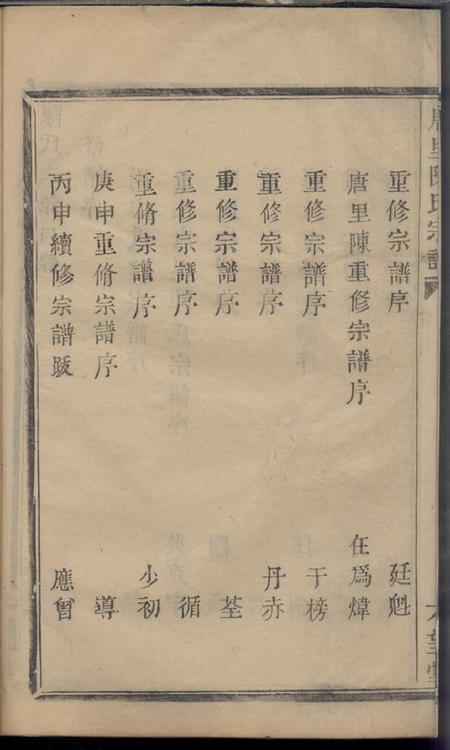 唐里陳氏宗譜
重修宗譜序 廷魁
唐里陳重修宗譜序 任爲煒
重修宗譜序 于榜
重修宗譜序 丹赤
重修宗譜序 荃
重修宗譜序 循
重脩宗譜序 少初
庚申重脩宗譜序 導
丙申續修宗譜跋 應曾